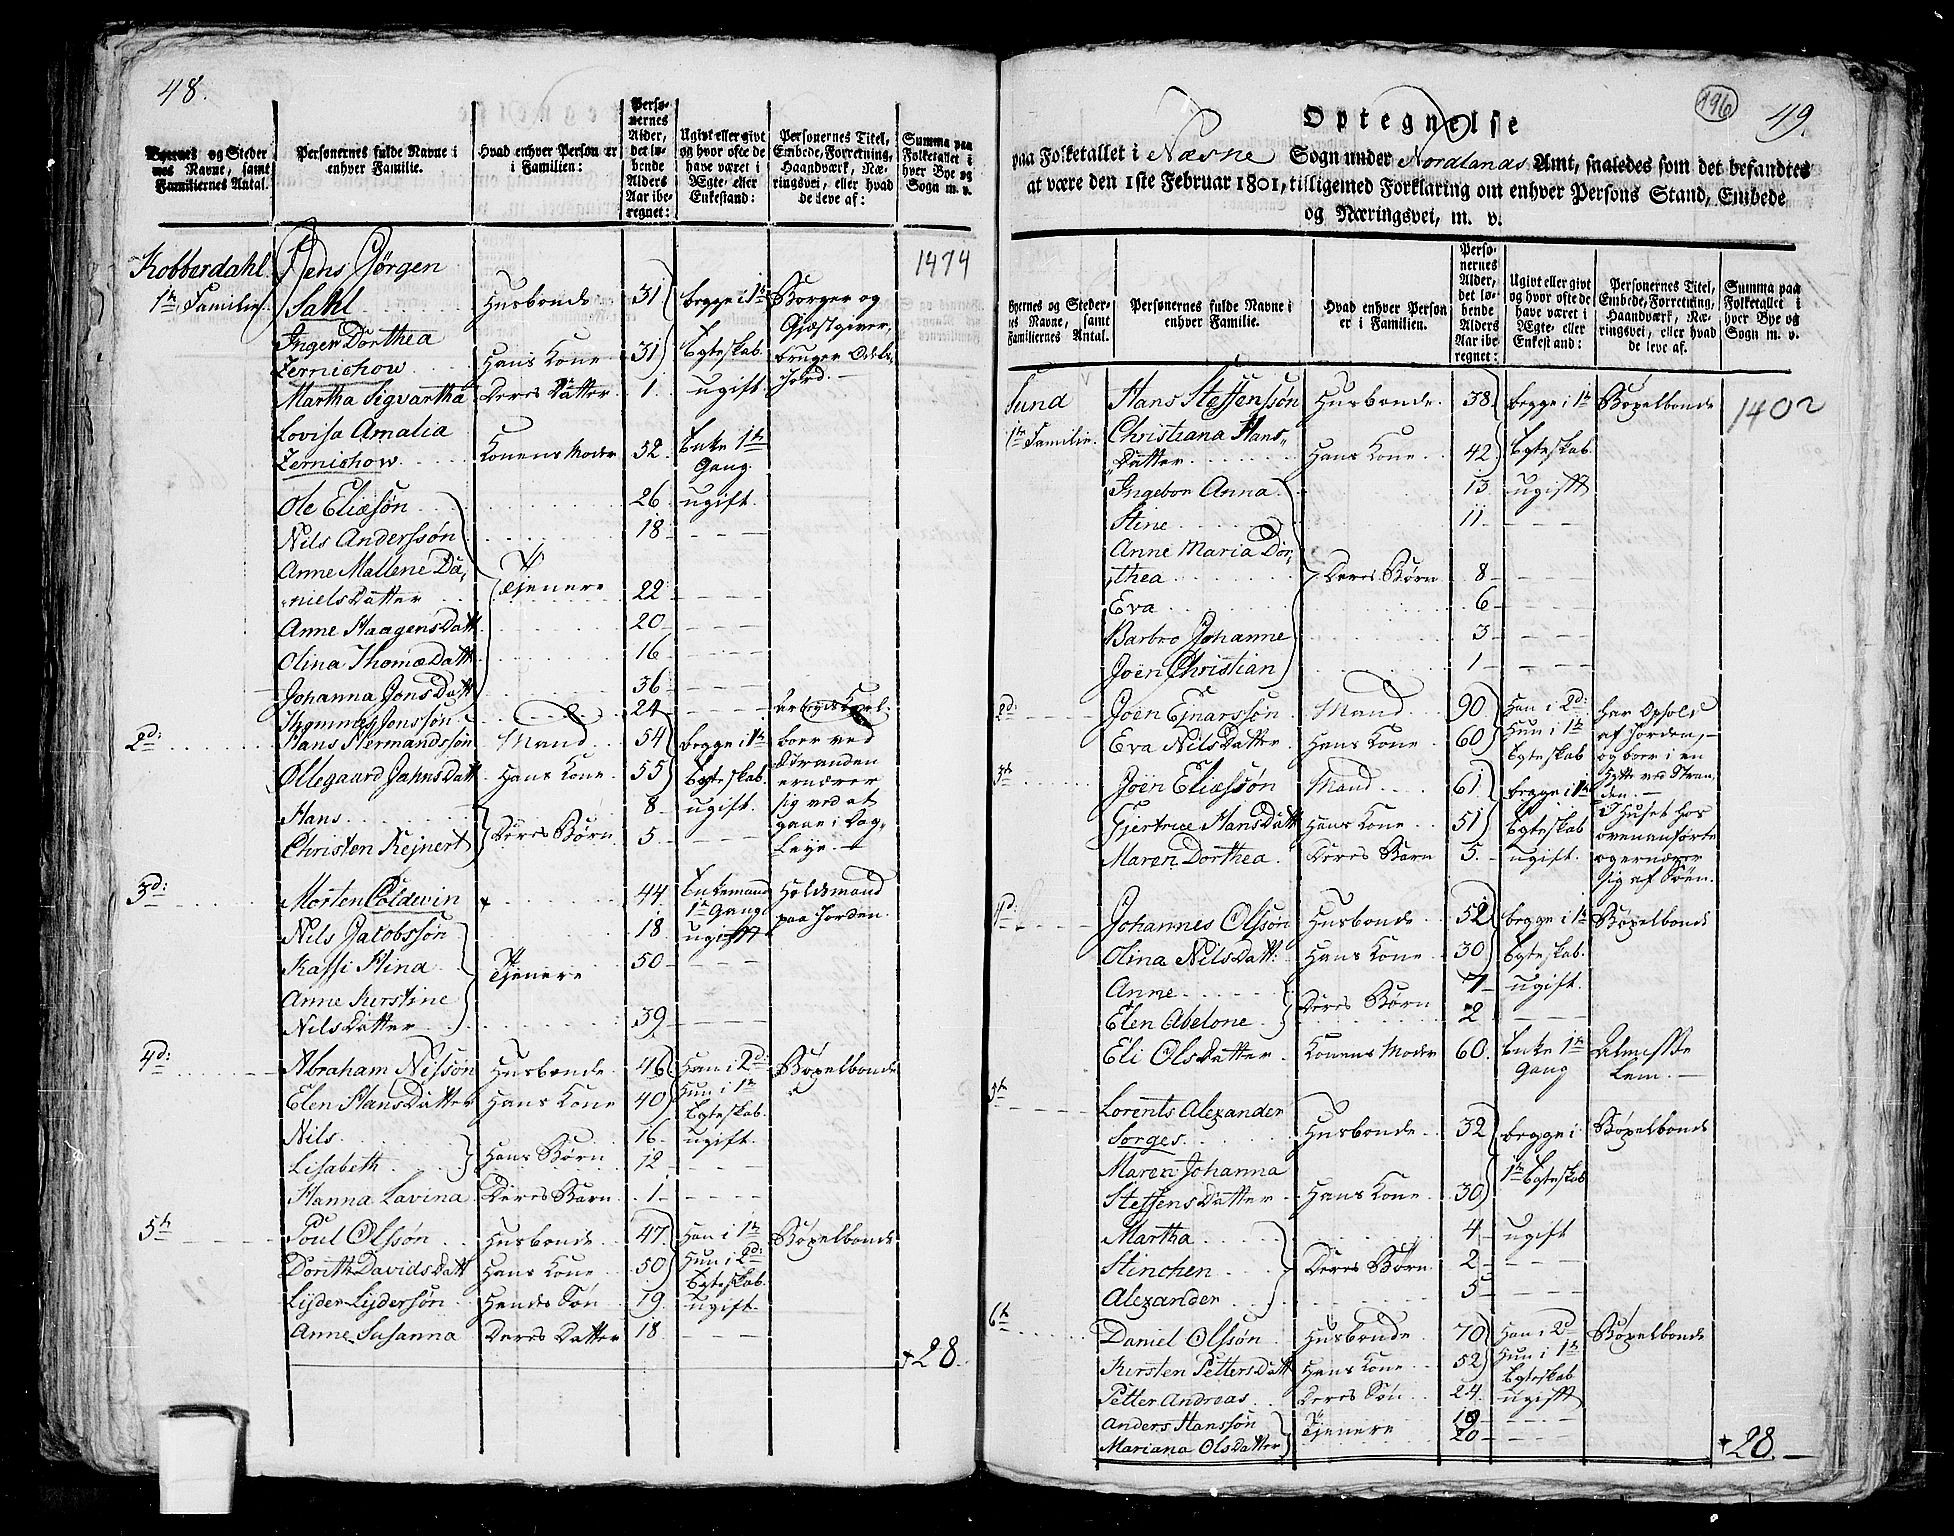 48.
Byernes og Steder
nes Navne, samt
Familiernes Antal.
Personernes fulde Navne i
enhver Familie.
Hvad enhver Person er
i Familien:
Perso-
nernes
Alder,
det lø-
bende
Alders
Aar ibe-
regnet:
Ugivt eller givt
og hvor ofte de
have været i
Ægte- eller
Enkestand:
Personernes Titel,
Embede, Forretning,
Haandværk, Næ-
ringsvei, eller hvad
de leve af:
Summa paa
Folketallet i
hver Bye og
Sogn m. v.
Kobberdahl. Jens Jørgen 1474
1te Familie. Sahl Husbonde 31 begge i 1te Borger og
Inger Dorthea Ægteskab Gjæstgiver,
Zernichow Hans Kone 31 bruger Odels
Martha Sigvartha Deres Datter 1. ugift Jord.
Lovisa Amalia
Zernichow Konens Moder 52 Enke 1te
Gang
Ole Eliæsøn 26 ugift.
Nils Anderssøn 18
Anne Mallene Da-
nielsDatter Tjenere 22
Anne HaagensDatt 20
Olina ThomæDatt 16
Johanna JonsDatt 36
Jonssøn 24
2d: Hans Hermandssøn Mand 54 begge i 1te boer ved
Øllegaard JahnsDatt Hans Kone 55 Ægteskab. Stranden
ernærer
Hans 8 ugift. sig ved at
Christen Rejnert Deres Børn 5 gaae i Dag-
Leye.
3d: Morten Coldevin 44 Enkemand Holdsmand
1te Gang paa Jorden.
Nils Jacobssøn 18 ugift
Kassi Stina Tjenere 50
Anne Kirstine
NilsDatter 39
4d: Abraham Nilssøn Husbonde 46 Han i 2d: Bøxelbonde
Elen HansDatter Hans Kone 40 Hun i 1te
Ægteskab.
Nils 16 ugift.
Lisabeth Hans Børn 12
Hanna Lavina Deres Barn 1
5te Poul Olssøn Husbonde 47. Han i 1te Bøxelbonde
Dorith DavidsDatt Hans Kone 50 Hun i 2d:
Ægteskab
Lyder Lydersøn Hendes Søn 19. ugift.
Anne Susanna Deres Datter 18.
+28.
196 49.
Optegnelse
paa Folketallet i Næsne Sogn under Nordlands Amt, saaledes som det befandtes
at være den 1ste Februar 1801, tilligemed Forklaring om enhver Persons Stand, Embede
og Næringsvei, m. v.
Byernes og Steder-
nes Navne, samt
Familiernes Antal.
Personernes fulde Navne i
enhver Familie.
Hvad enhver Person
er i Familien.
Perso-
nernes
Alder,
det lø-
bende
Alders
Aar ibe-
regnet:
Ugivt eller givt
og hvor ofte de
have været i
Ægte- eller
Enkestand:
Personernes Titel,
Embede, Forretning,
Haandværk, Næ-
ringsvei, eller hvad
de leve af.
Summa paa
Folketallet i
hver Bye og
Sogn m. v.
Sund Hans Steffenssøn Husbonde 38 begge i 1te Bøxelbonde 1402
1te Familie. Christiana Hans-
Datter Hans Kone 42 Ægteskab
Ingebor Anna 13 ugift
Stine 11
Anne Maria Dor-
thea Deres Børn 8
Eva 6
Barbro Johanne 3
Joen Christian 1
2d: Joen Ejnarssøn Mand 90 Han i 2d: har Ophold
Eva NilsDatter Hans Kone 60 Hun i 1te af Jorden,
Ægteskab og boer i en
3te Joen Eliæssøn Mand 61 begge i 1te Hytte ved Stran
den.
Gjertrue HansDatt Hans Kone 51 Ægteskab I Huset hos
Maren Dorthea Deres Barn 5. ugift. ovenanførte
og ernærer
sig af Søen.
4d: Johannes Olssøn Husbonde 52 begge i 1te Bøxelbonde
Olina NilsDatt: Hans Kone 30 Ægteskab.
Anne 7 ugift.
Elen Abelone Deres Børn 2
Eli OlsDatter Konens Moder 60. Enke 1te Almisse
Gang Lem.
5te Lorents Alexander
Sorges Husbonde 32 begge i Bøxelbonde
Maren Johanna
SteffensDatter Hans Kone 30 1te Ægteskab
Martha 4 ugift
Stinchen Deres Børn 2
Alexander 5
6te Daniel Olssøn Husbonde 70 Han i 2d Bøxelbonde
Kirsten PettersDatt Hans Kone 52 Hun i 1te
Ægteskab
Petter Andreas Deres Søn 24. ugift
Anders Hanssøn Tjenere 19
Mariana OlsDatter 20
+28.